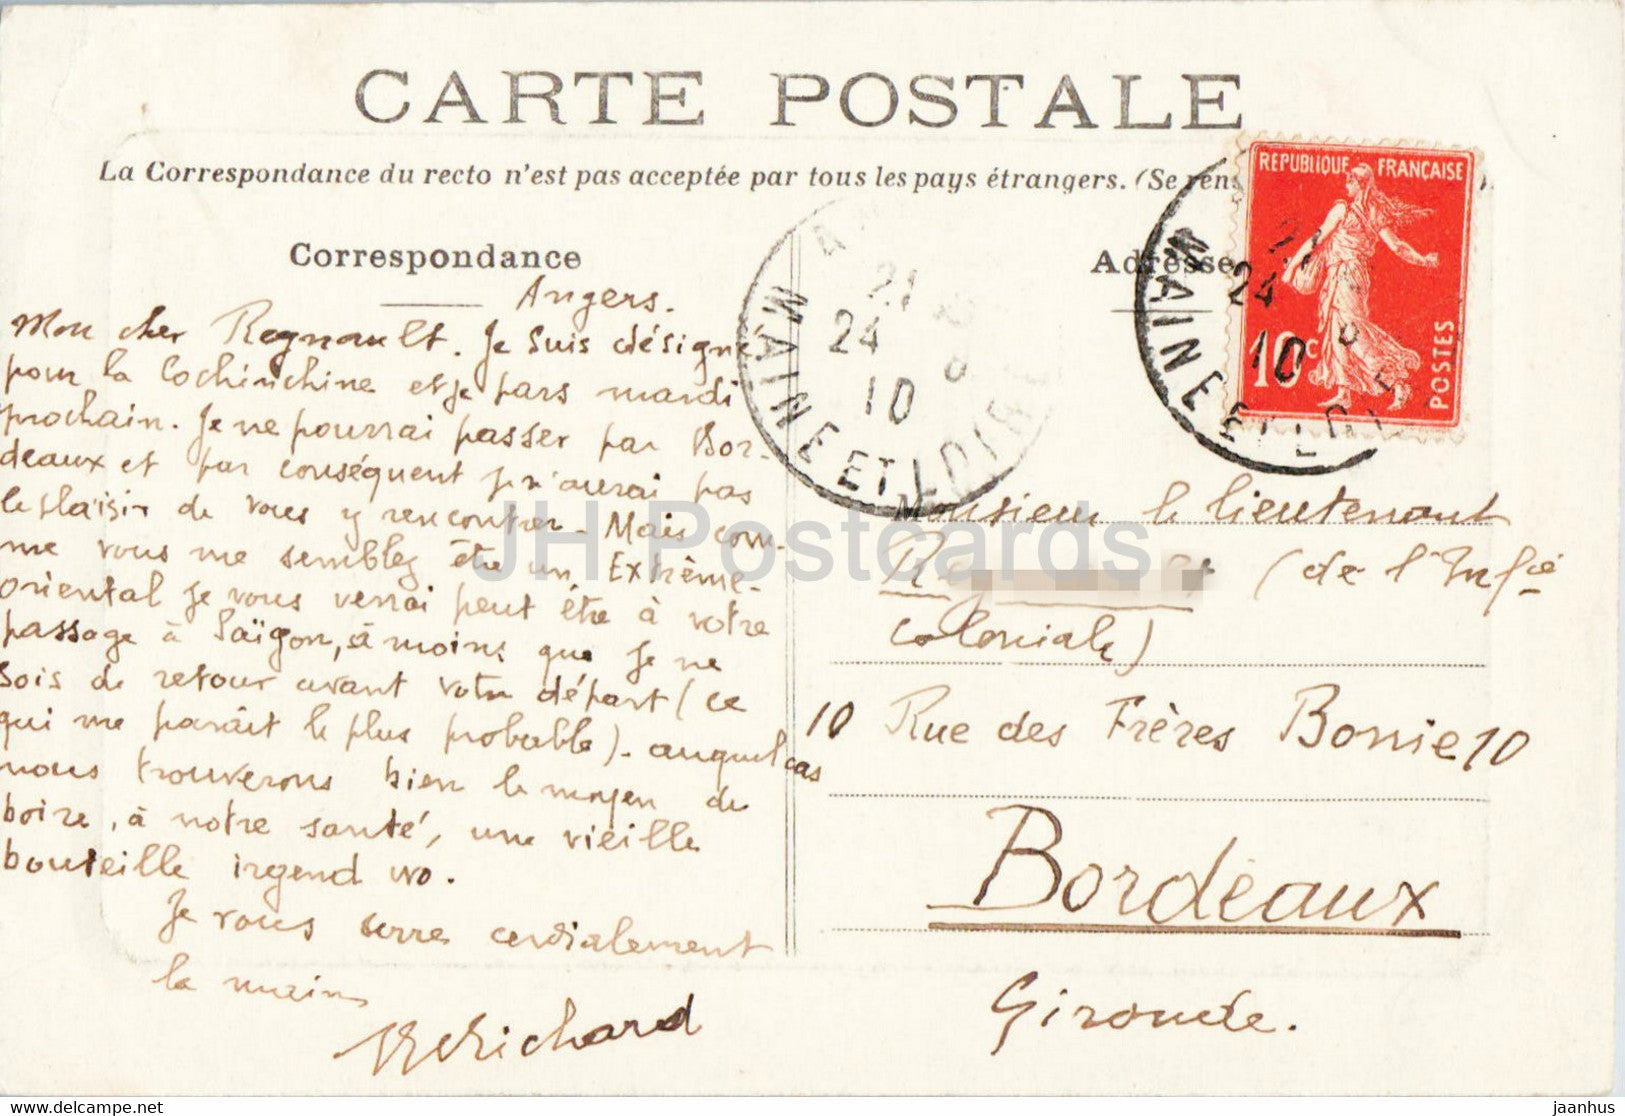 CARTE POSTALE
La Correspondance du recto n'est pas acceptée par tous les pays étrangers. (Se rens
Correspondance
Angers.
Mon cher Regnault. Je suis désigné
pour la Cochinchine et je pars mardi
prochain. Je ne pourrai passer par Bor-
deaux et par conséquent je n'aurai pas
le plaisir de vous y rencontrer - Mais com-
me vous me semblez être un Extrême-
oriental je vous verrai peut être à votre
passage à Saïgon, à moins que je ne
sois de retour avant votre départ (ce
qui me paraît le plus probable) - auquel cas
nous trouverons bien le moyen de
boire, à notre santé, une vieille
bouteille irgend wo.
Je vous serre cordialement
la main
Richard
Adresse
RÉPUBLIQUE FRANÇAISE
10c
POSTES
21
24
10
MAINE ET LOIRE
21
24
10
MAINE ET LOIRE
Monsieur le lieutenant
(de l'Infie
coloniale)
10 Rue des Frères Bonie 10
Bordeaux
Gironde.
JH Postcards
https://www.jhpostcards.com
jaanhus